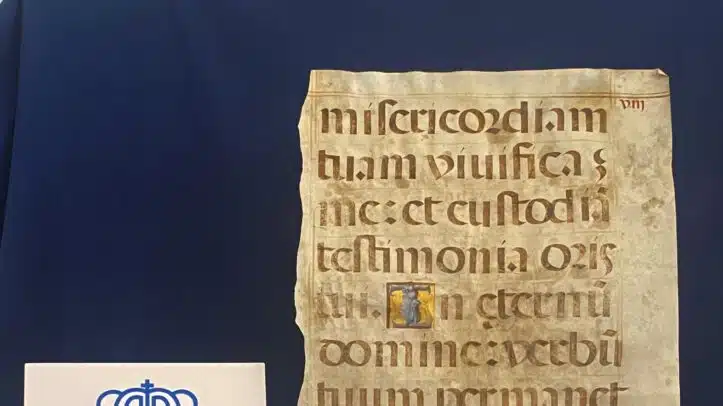 misericordiam
viij
tuam viuifica
me: et custodiā
testimonia oris
tui. In eternū
domine: verbū
tuum permanet